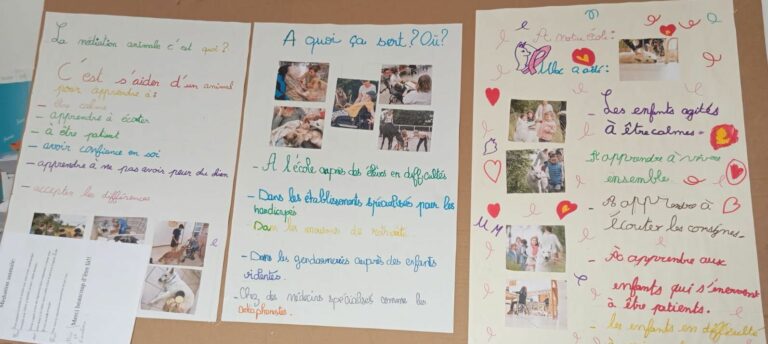 La médiation animale c'est quoi ?
C'est s'aider d'un animal
pour apprendre à :
- être calme
- apprendre à écouter
- à être patient
- avoir confiance en soi
- apprendre à ne pas avoir peur du chien
- accepter les différences
Médiation animale.
Merci beaucoup d'être
A quoi ça sert ? Où ?
- A l'école auprès des élèves en difficultés
- Dans les établissements spécialisés pour les
handicapés
Dans les maisons de retraite
- Dans les gendarmeries auprès des enfants
violentés.
- Chez des médecins spécialisés comme les
A notre école :
a aidé :
- Les enfants agités
à être calmes.
A apprendre à vivre
ensemble
- A apprendre à
écouter les consignes.
- À apprendre aux
enfants qui s'énervent
à être patients.
- les enfants en difficulté